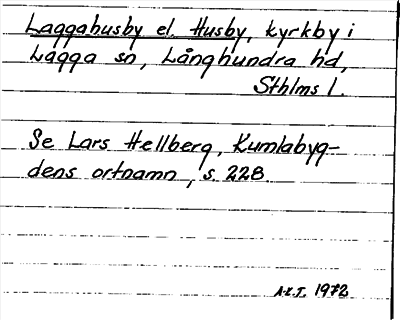 Laggahusby el. Husby, kyrkby i
Lagga sn, Långhundra hd,
Sthlms l.
Se Lars Hellberg, Kumlabyg-
dens ortnamn, s. 228.
A.K.T. 1972